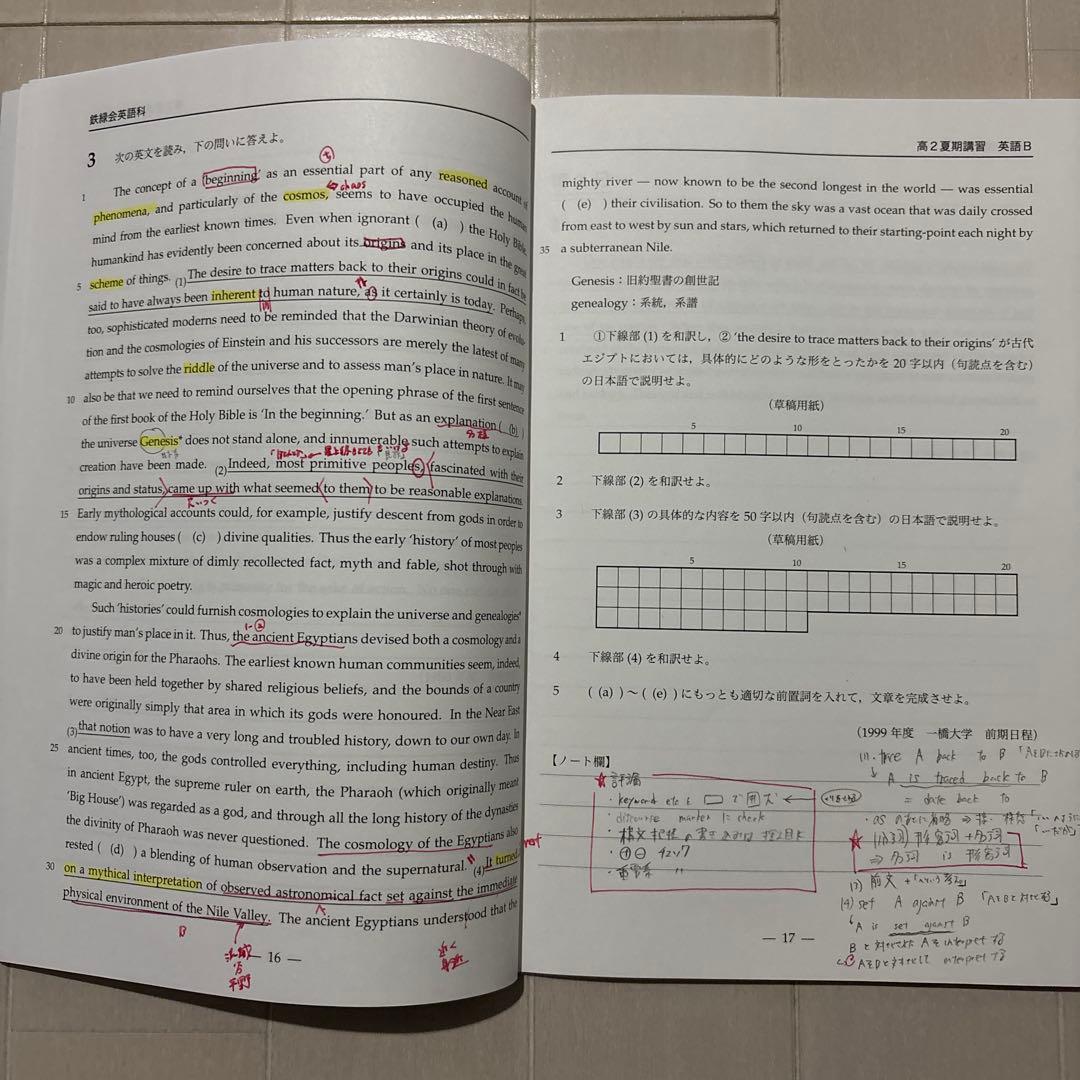 鉄緑会英語科
3 次の英文を読み,下の問いに答えよ。
The concept of a 'beginning' as an essential part of any reasoned account of
phenomena, and particularly of the cosmos, seems to have occupied the human
chaos
mind from the earliest known times. Even when ignorant ( (a) ) the Holy Bible,
humankind has evidently been concerned about its origins and its place in the great
5 scheme of things. (1)The desire to trace matters back to their origins could in fact be
said to have always been inherent to human nature, as it certainly is today. Perhaps,
too, sophisticated moderns need to be reminded that the Darwinian theory of evolu-
tion and the cosmologies of Einstein and his successors are merely the latest of many
attempts to solve the riddle of the universe and to assess man's place in nature. It may
10 also be that we need to remind ourselves that the opening phrase of the first sentence
of the first book of the Holy Bible is 'In the beginning.' But as an explanation ( (b) )
the universe Genesis* does not stand alone, and innumerable such attempts to explain
creation have been made. (2)Indeed, most primitive peoples, fascinated with their
origins and status, came up with what seemed to them to be reasonable explanations.
15 Early mythological accounts could, for example, justify descent from gods in order to
endow ruling houses ( (c) ) divine qualities. Thus the early 'history' of most peoples
was a complex mixture of dimly recollected fact, myth and fable, shot through with
magic and heroic poetry.
Such 'histories' could furnish cosmologies to explain the universe and genealogies*
1-②
20 to justify man's place in it. Thus, the ancient Egyptians devised both a cosmology and a
divine origin for the Pharaohs. The earliest known human communities seem, indeed,
to have been held together by shared religious beliefs, and the bounds of a country
were originally simply that area in which its gods were honoured. In the Near East
(3)that notion was to have a very long and troubled history, down to our own day. In
25 ancient times, too, the gods controlled everything, including human destiny. Thus
in ancient Egypt, the supreme ruler on earth, the Pharaoh (which originally meant
'Big House') was regarded as a god, and through all the long history of the dynasties
the divinity of Pharaoh was never questioned. The cosmology of the Egyptians also
rested ( (d) ) a blending of human observation and the supernatural. (4)It turned
30 on a mythical interpretation of observed astronomical fact set against the immediate
physical environment of the Nile Valley. The ancient Egyptians understood that the
A
B
平野
— 16 —
高2夏期講習 英語B
mighty river — now known to be the second longest in the world — was essential
( (e) ) their civilisation. So to them the sky was a vast ocean that was daily crossed
from east to west by sun and stars, which returned to their starting-point each night by
35 a subterranean Nile.
Genesis:旧約聖書の創世記
genealogy:系統,系譜
1 ①下線部(1)を和訳し,②'the desire to trace matters back to their origins'が古代
エジプトにおいては,具体的にどのような形をとったかを20字以内(句読点を含む)
の日本語で説明せよ。
(草稿用紙)
5 10 15 20
2 下線部(2)を和訳せよ。
3 下線部(3)の具体的な内容を50字以内(句読点を含む)の日本語で説明せよ。
(草稿用紙)
5 10 15 20
4 下線部(4)を和訳せよ。
5 ( (a) )~( (e) )にもっとも適切な前置詞を入れて,文章を完成させよ。
(1999年度 一橋大学 前期日程)
【ノート欄】
(1). trace A back to B
A is traced back to B
= date back to
☆評論
・discourse marker に check
・⊕⊖ チェック
⇒ 名詞 is 形容詞
(4) set A against B 「AをBと対比する」
A is set against B
— 17 —